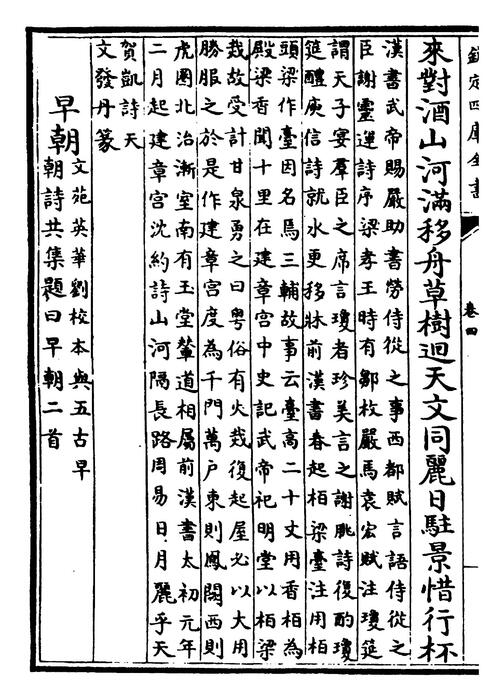 欽定四庫全書
卷四
來對酒山河滿移舟草樹迴天文同麗日駐景惜行杯
漢書武帝賜嚴助書勞侍從之事西都賦言語侍從之
臣謝靈運詩序梁孝王時有鄒枚嚴馬袁宏賦注瓊筵
謂天子宴羣臣之席言瓊者珍美言之謝朓詩復酌瓊
筵醴庾信詩就水更移牀前漢書春起柏梁臺注用柏
頭梁作臺因名焉三輔故事云臺高二十丈用香柏為
殿梁香聞十里在建章宮中史記武帝祀明堂以柏梁
烖故受計甘泉勇之曰粵俗有火烖復起屋必以大用
勝服之於是作建章宮度為千門萬户東則鳳闕西則
虎圈北治漸室南有玉堂輦道相屬前漢書太初元年
二月起建章宮沈約詩山河隔長路周易日月麗乎天
賀凱詩天
文發丹篆
早朝
文苑英華劉校本與五古早
朝詩共集題曰早朝二首